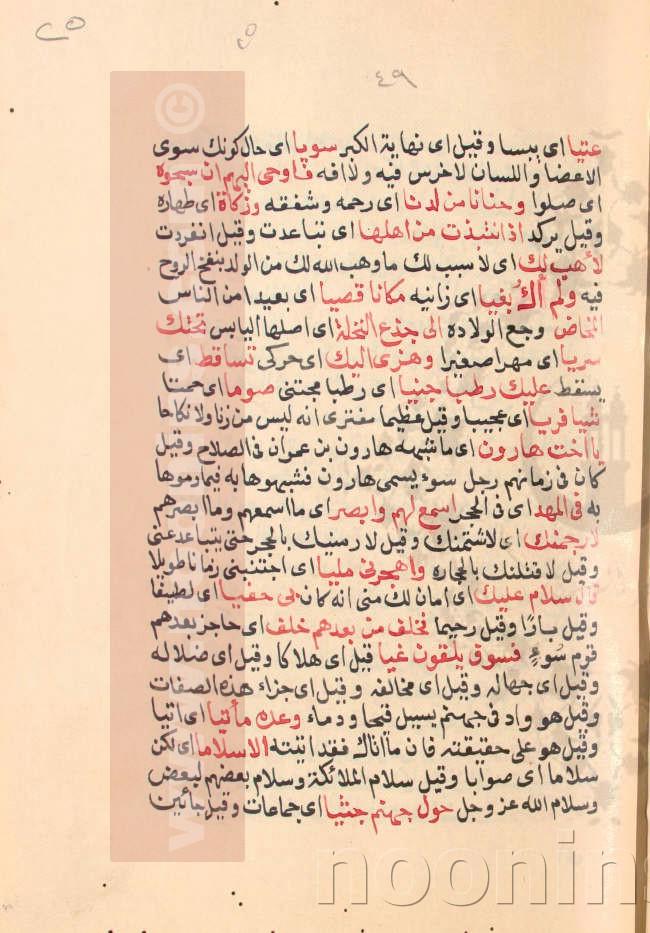 ٤٩
عتيا اى يبسا وقيل اى نهاية الكبر سويا اى حال كونك سوى
الاعضا واللسان لاخرس فيه ولاافه فاوحى اليهم ان سبحوه
اى صلوا وحنانا من لدنا اى رحمه وشفقه وزكاة اى طهاره
وقيل بركه اذ انتبذت من اهلها اى تباعدت وقيل انفردت
لأهب لك اى لأسبب لك ما وهب الله لك من الولد بنفخ الروح
فيه ولم اك بغيا اى زانيه مكانا قصيا اى بعيدا من الناس
المخاض وجع الولاده الى جذع النخلة اى اصلها اليابس تحتك
سريا اى نهرا صغيرا وهزى اليك اى حركى تساقط اى
يسقط عليك رطبا جنيا اى رطبا مجتنى صوما اى صمتا
شيا فريا اى عجيبا وقيل عظيما مفترى انه ليس من زنا ولا نكاحا
يا اخت هارون اى ما شبهه هارون بن عمران فى الصلاح وقيل
كان فى زمانهم رجل سوء يسمى هارون فشبهوها به فيما رموها
به فى المهد اى فى الحجر اسمع لهم وابصر اى ما اسمعهم وما ابصرهم
لارجمنك اى لاشتمنك وقيل لارمينك بالحجر حتى يتباعد عنى
وقيل لاقتلنك بالحجاره واهجرنى مليا اى اجتنبنى زمانا طويلا
قال سلام عليك اى امان لك منى انه كان بى حفيا اى لطيفا
وقيل بارا وقيل رحيما فخلف من بعدهم خلف اى حاجز بعدهم
قوم سوء فسوف يلقون غيا قيل اى هلاكا وقيل اى ضلاله
وقيل اى جهاله وقيل اى مخالفه وقيل اى جزاء هذه الصفات
وقيل هو واد فى جهنم يسيل قيحا ودماء وعده مأتيا اى اتيا
وقيل هو على حقيقته فان ما اتاك فقد اتيته الا سلاما اى لكن
سلاما اى صوابا وقيل سلام الملائكة وسلام بعضهم لبعض
وسلام الله عز وجل حول جهنم جثيا اى جماعات وقيل جاثين
noonin